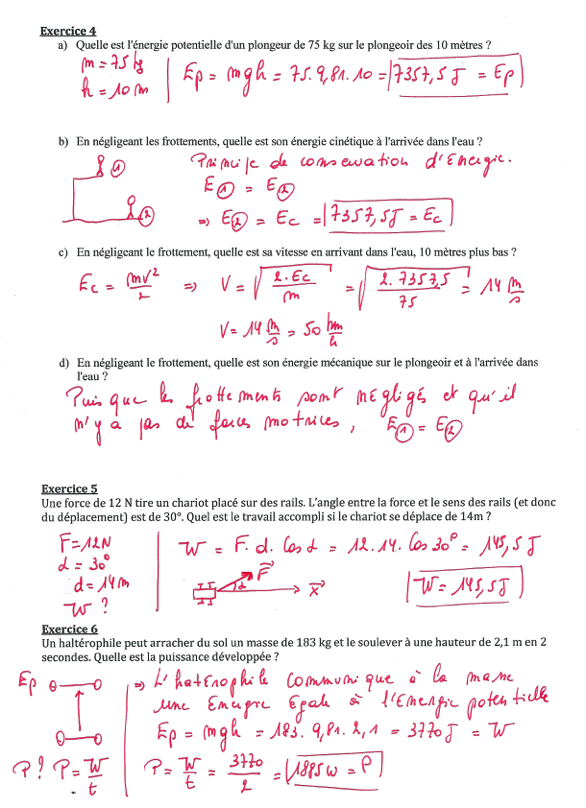 Exercice 4
a) Quelle est l'énergie potentielle d'un plongeur de 75 kg sur le plongeoir des 10 mètres ?
m = 75 kg
h = 10 m
Ep = mgh = 75 . 9,81 . 10 = 7357,5 J = Ep
b) En négligeant les frottements, quelle est son énergie cinétique à l'arrivée dans l'eau ?
Principe de conservation d'énergie.
1
E1 = E2
2
=> E2 = Ec = 7357,5 J = Ec
c) En négligeant le frottement, quelle est sa vitesse en arrivant dans l'eau, 10 mètres plus bas ?
Ec = mv²/2 => V = √(2.Ec/m) = √(2.7357,5/75) = 14 m/s
V = 14 m/s = 50 km/h
d) En négligeant le frottement, quelle est son énergie mécanique sur le plongeoir et à l'arrivée dans
l'eau ?
Puis que les frottements sont négligés et qu'il
n'y a pas de forces motrices, E1 = E2
Exercice 5
Une force de 12 N tire un chariot placé sur des rails. L'angle entre la force et le sens des rails (et donc
du déplacement) est de 30°. Quel est le travail accompli si le chariot se déplace de 14m ?
F = 12N
α = 30°
d = 14 m
W ?
W = F. d. Cos α = 12. 14. Cos 30° = 145,5 J
F
α
X
W = 145,5 J
Exercice 6
Un haltérophile peut arracher du sol un masse de 183 kg et le soulever à une hauteur de 2,1 m en 2
secondes. Quelle est la puissance développée ?
Ep
=> L'haterophile communique à la masse
une énergie égale à l'énergie potentielle
Ep = mgh = 183. 9,81. 2,1 = 3770 J = W
P? P = W/t
P = W/t = 3770/2 = 1885 W = P